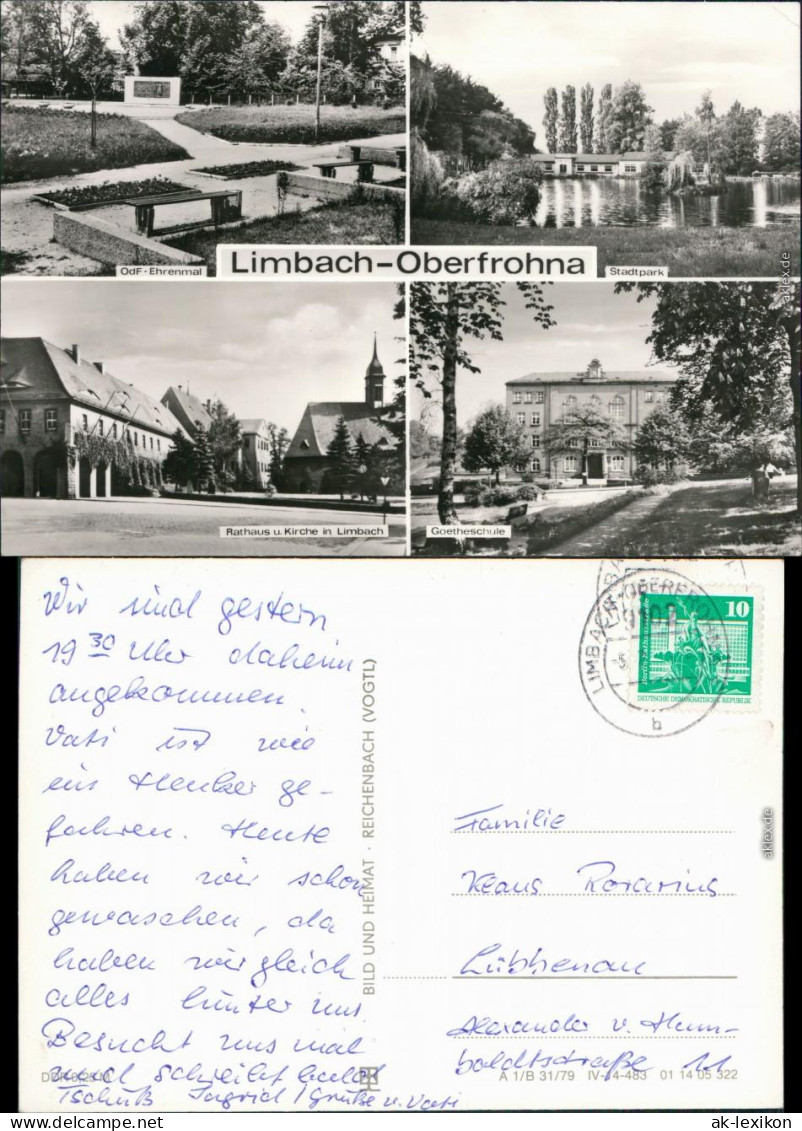 OdF-Ehrenmal
Limbach-Oberfrohna
Stadtpark
akpool.de
Rathaus u. Kirche in Limbach
Goetheschule
Wir sind gestern
19 30 Uhr daheim
angekommen.
Vati ist wie
ein Henker ge-
fahren. Heute
haben wir schon
gewaschen, da
haben wir gleich
alles hinter uns.
Besucht uns mal
und schreibt bald
Tschüß Ingrid / Grüße v. Vati
DDR 0,25 M
BILD UND HEIMAT · REICHENBACH (VOGTL)
LIMBACH-OBERFROHNA
b
10
DEUTSCHE DEMOKRATISCHE REPUBLIK
Familie
Klaus Rorarius
Lübbenau
Alexander v. Hum-
boldtstraße 11
A 1/B 31/79 IV-14-483 01 14 05 322
ak-lexikon.de
ak-lexikon.com